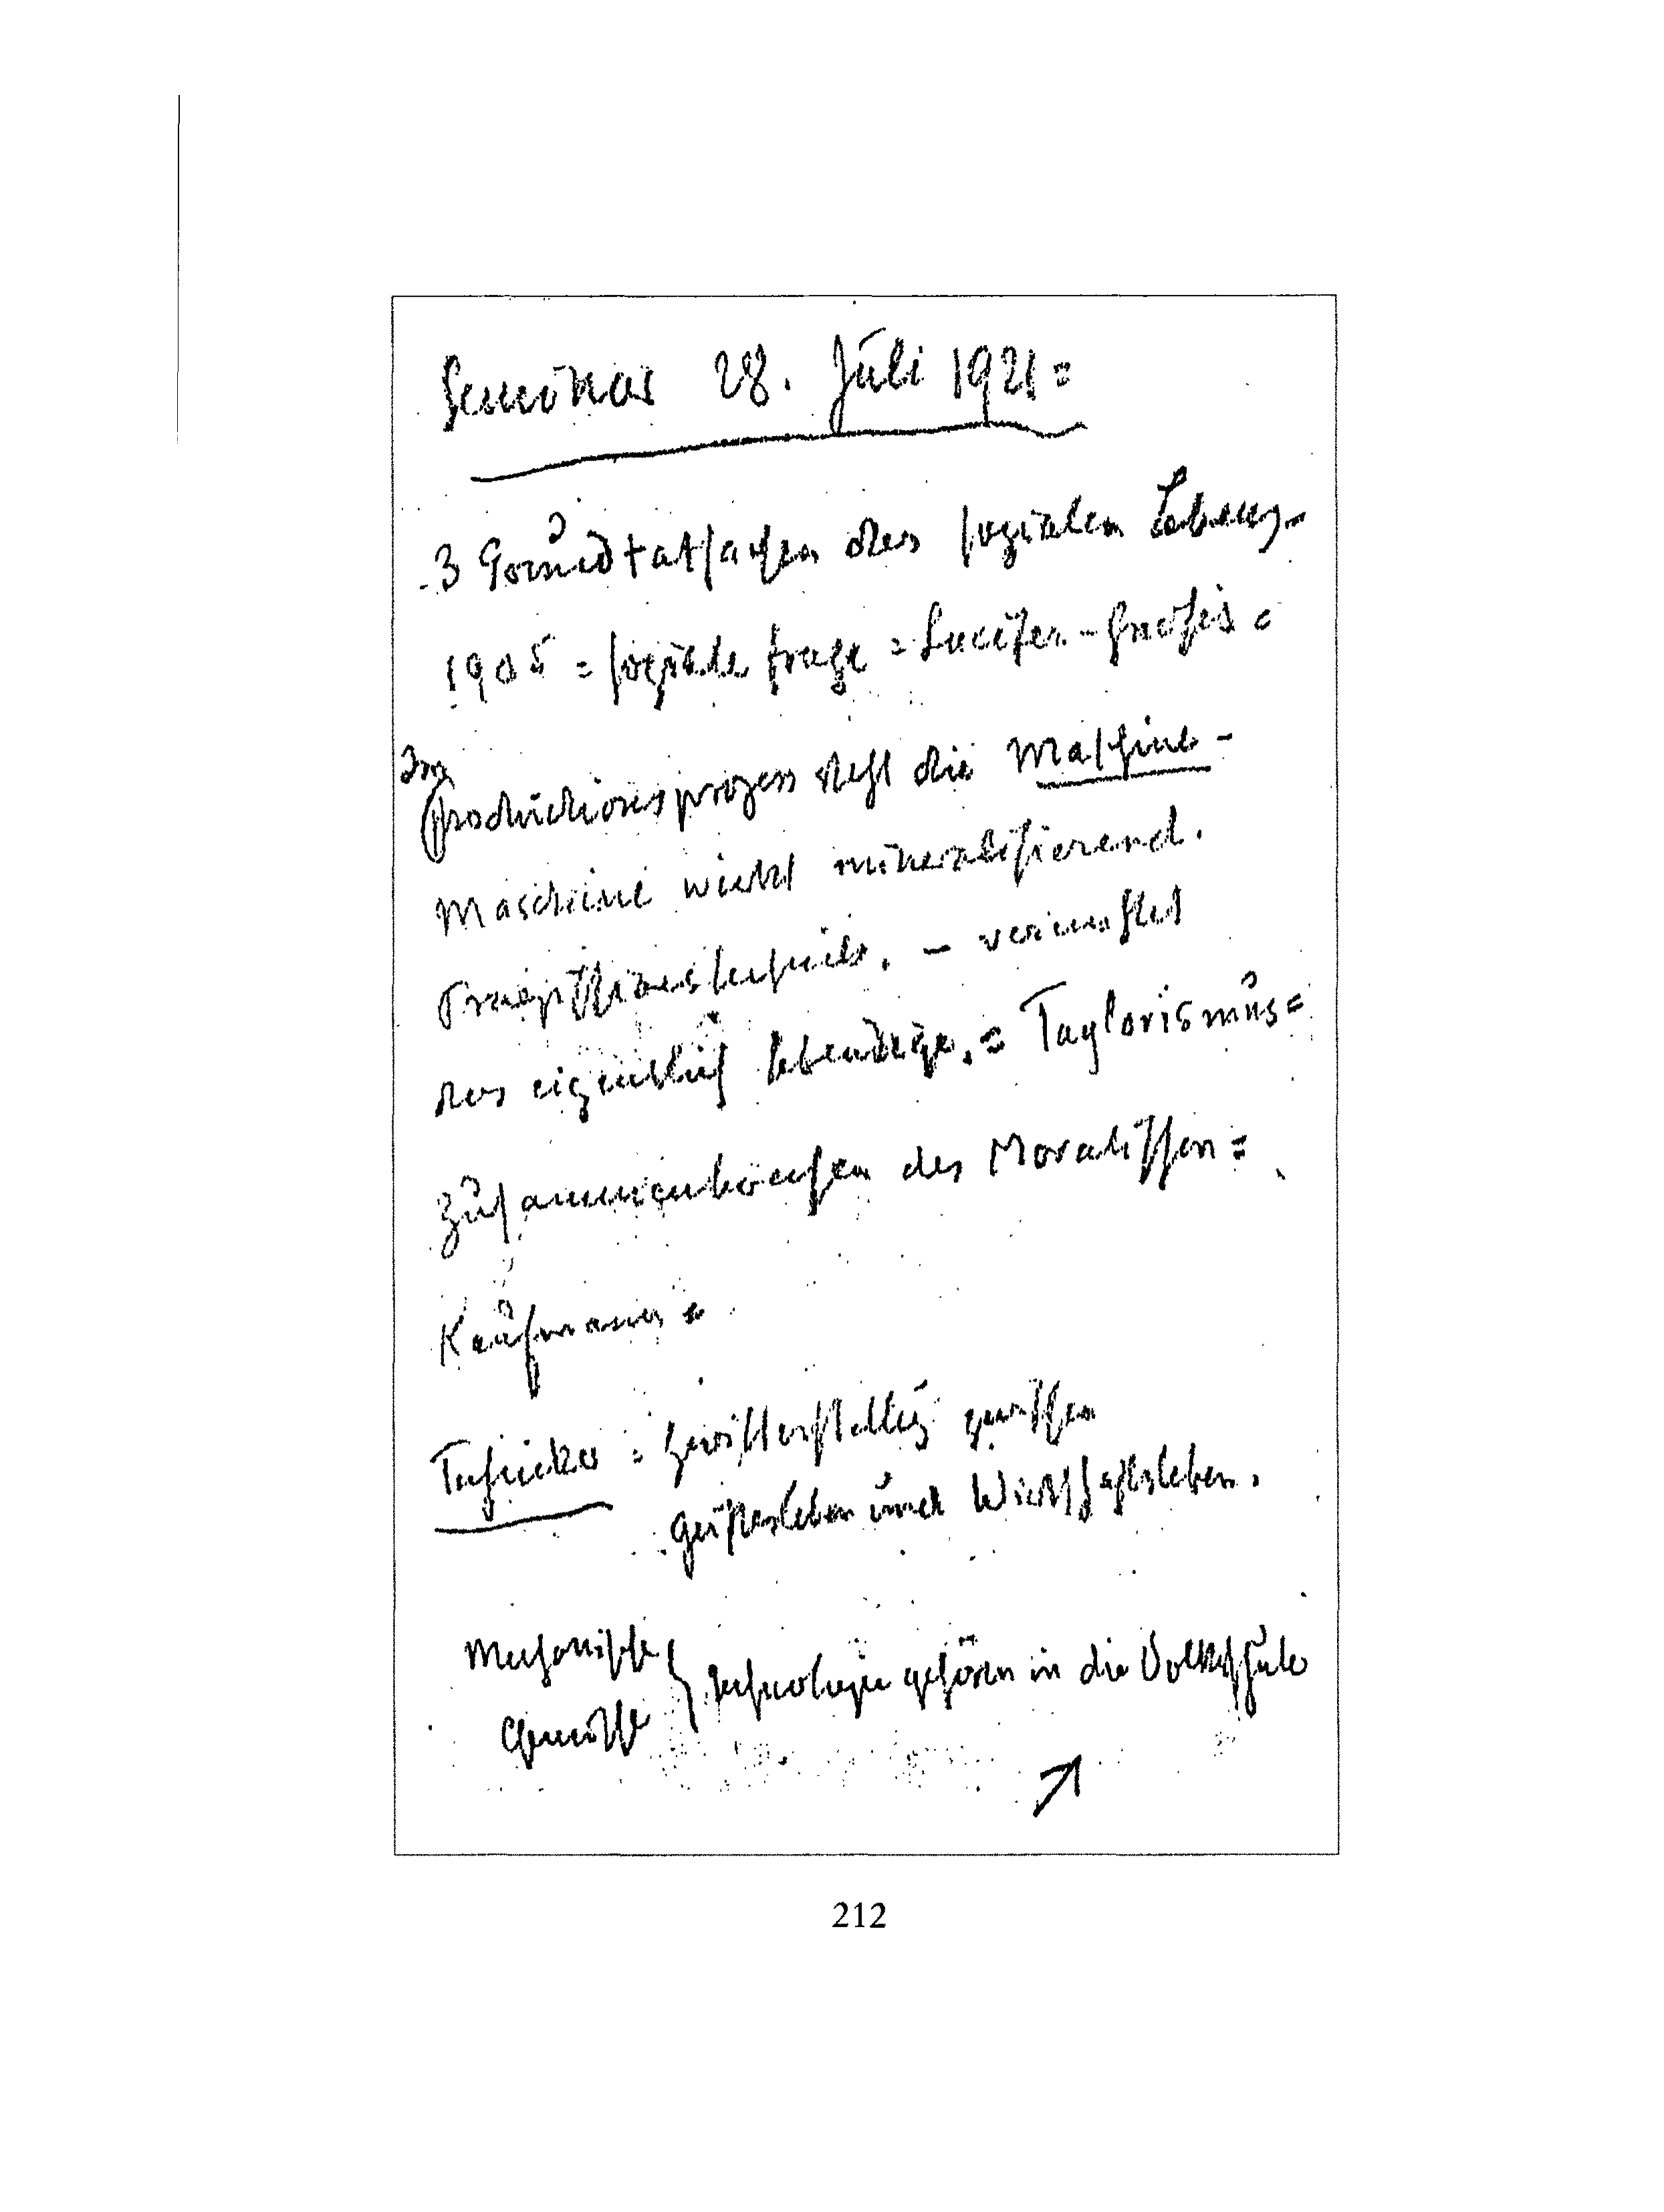 Seminar 28. Juli 1921 =
3 Grundtatsachen des sozialen Lebens.
1905 = soziale Frage = Lucifer-Gnosis =
Im
Productionsprozess steht die Maschine -
Maschine wirkt mineralisierend.
- vernichtet
das eigentlich Lebendige. = Taylorismus =
des Moralischen =
Kaufmann =
Techniker = Zwitterstellung zwischen
Geistesleben und Wirtschaftsleben.
Mechanische
Chemische } Technologie gehören in die Volksschule
212